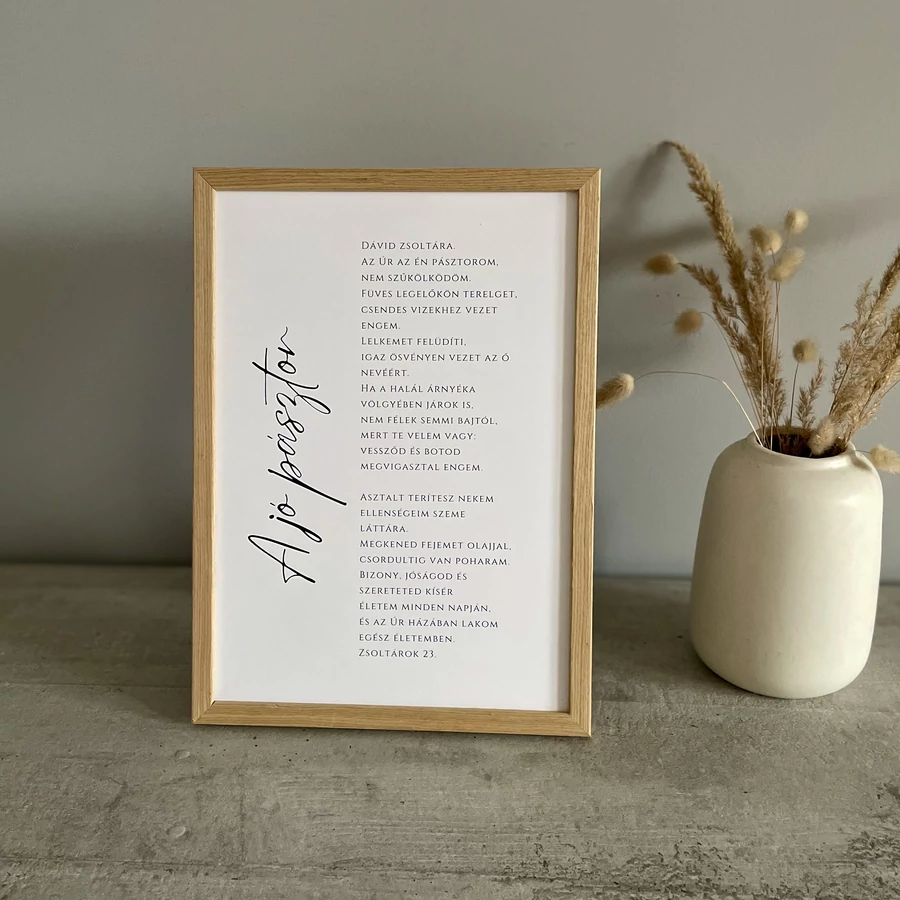 A jó pásztor
Dávid zsoltára.
Az Úr az én pásztorom,
nem szűkölködöm.
Füves legelőkön terelget,
csendes vizekhez vezet
engem.
Lelkemet felüdíti,
igaz ösvényen vezet az ő
nevéért.
Ha a halál árnyéka
völgyében járok is,
nem félek semmi bajtól,
mert te velem vagy:
vessződ és botod
megvigasztal engem.
Asztalt terítesz nekem
ellenségeim szeme
láttára.
Megkened fejemet olajjal,
csordultig van poharam.
Bizony, jóságod és
szereteted kísér
életem minden napján,
és az Úr házában lakom
egész életemben.
Zsoltárok 23.